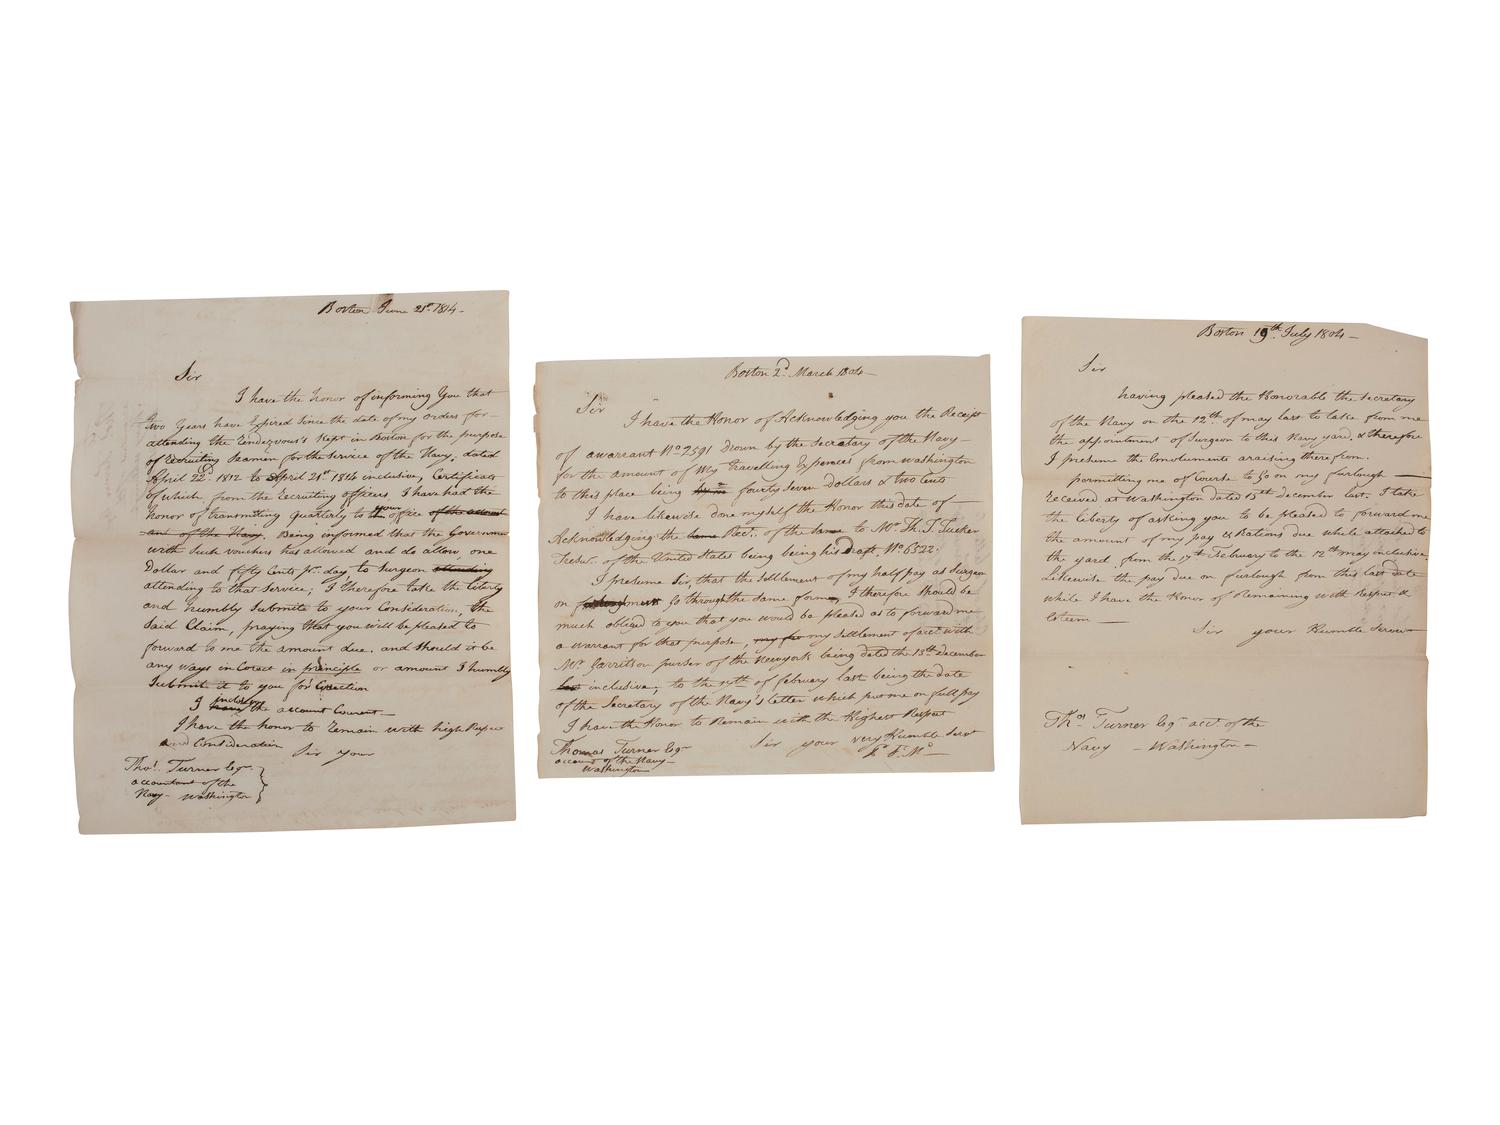 Boston June 21st 1814
Sir
I have the honor of informing You that
Two Years have Expired Since the date of my orders for
attending the Rendezvous's Kept in Boston for the purpose
of recruiting Seamen for the Service of the Navy; dated
April 22d 1812 to April 21st 1814 inclusive, Certificates
of which, from the recruiting officers, I have had the
honor of transmitting quarterly to your office of the account
ant of the Navy. Being informed that the Governme
with Such vouchers has allowed and do allow, one
Dollar and fifty Cents pr. day to Surgeon attending
attending to that Service; I therefore take the liberty
and humbly Submite to your Consideration, the
Said Claim, praying that you will be pleased to
forward to me the amount due. and Should it be
any ways in Corect in principle or amount I humbly
Submit it to you for Corection
I have inclosed the account Courent
I have the honor to Remain with high Respect
and Consideration Sir your
Thos. Turner Esqr.
accountant of the
Navy - Washington
Boston 2d March 1804
Sir
I have the Honor of Acknowledging you the Receipt
of a warrant No 2591 Drown by the Secretary of the Navy
for the amount of My travelling Expences from Washington
to this place being fourty Seven dollars & two Cents
I have likewise done myself the Honor this date of
Acknowledging the Same Rect. of the Same to Mr Th. T. Tucker
Tresur. of the United States being being his Draft. No 6522.
I presume Sir, that the Settlement of my half pay as Surgeon
on Go through the Same forme, I therefore Should be
much obliged to you that you would be pleased as to forward me
a warrant for that purpose, my Settlement of acct. with
Mr. Garritson purser of the Newyork being dated the 15th December
last inclusive; to the 17th of february last being the date
of the Secretary of the Navy's letter which put me on full pay
I have the Honor to Remain with the Highest Respect
Sir your very Humble Servt
Thomas Turner Esqr
account of the Navy
Washington
Boston 19th July 1804
Sir
having pleased the Honorable the Secretary
of the Navy on the 12th. of may last to take from me
the appointment of Surgeon to this Navy yard. & therefore
I presume the Emoluments araising therefrom.
permitting me of Course to Go on my furlough
received at Washington dated 15th december last. I take
the liberty of asking you to be pleased to forward me
the amount of my pay & Rations due while attached to
the yard from the 17th February to the 12th may inclusive.
Likewise the pay due on furlough from this last date
while I have the Honor of Remaining with Respect &
Esteem
Sir your Humble Serv
Thos Turner Esqr acct of the
Navy - Washington -